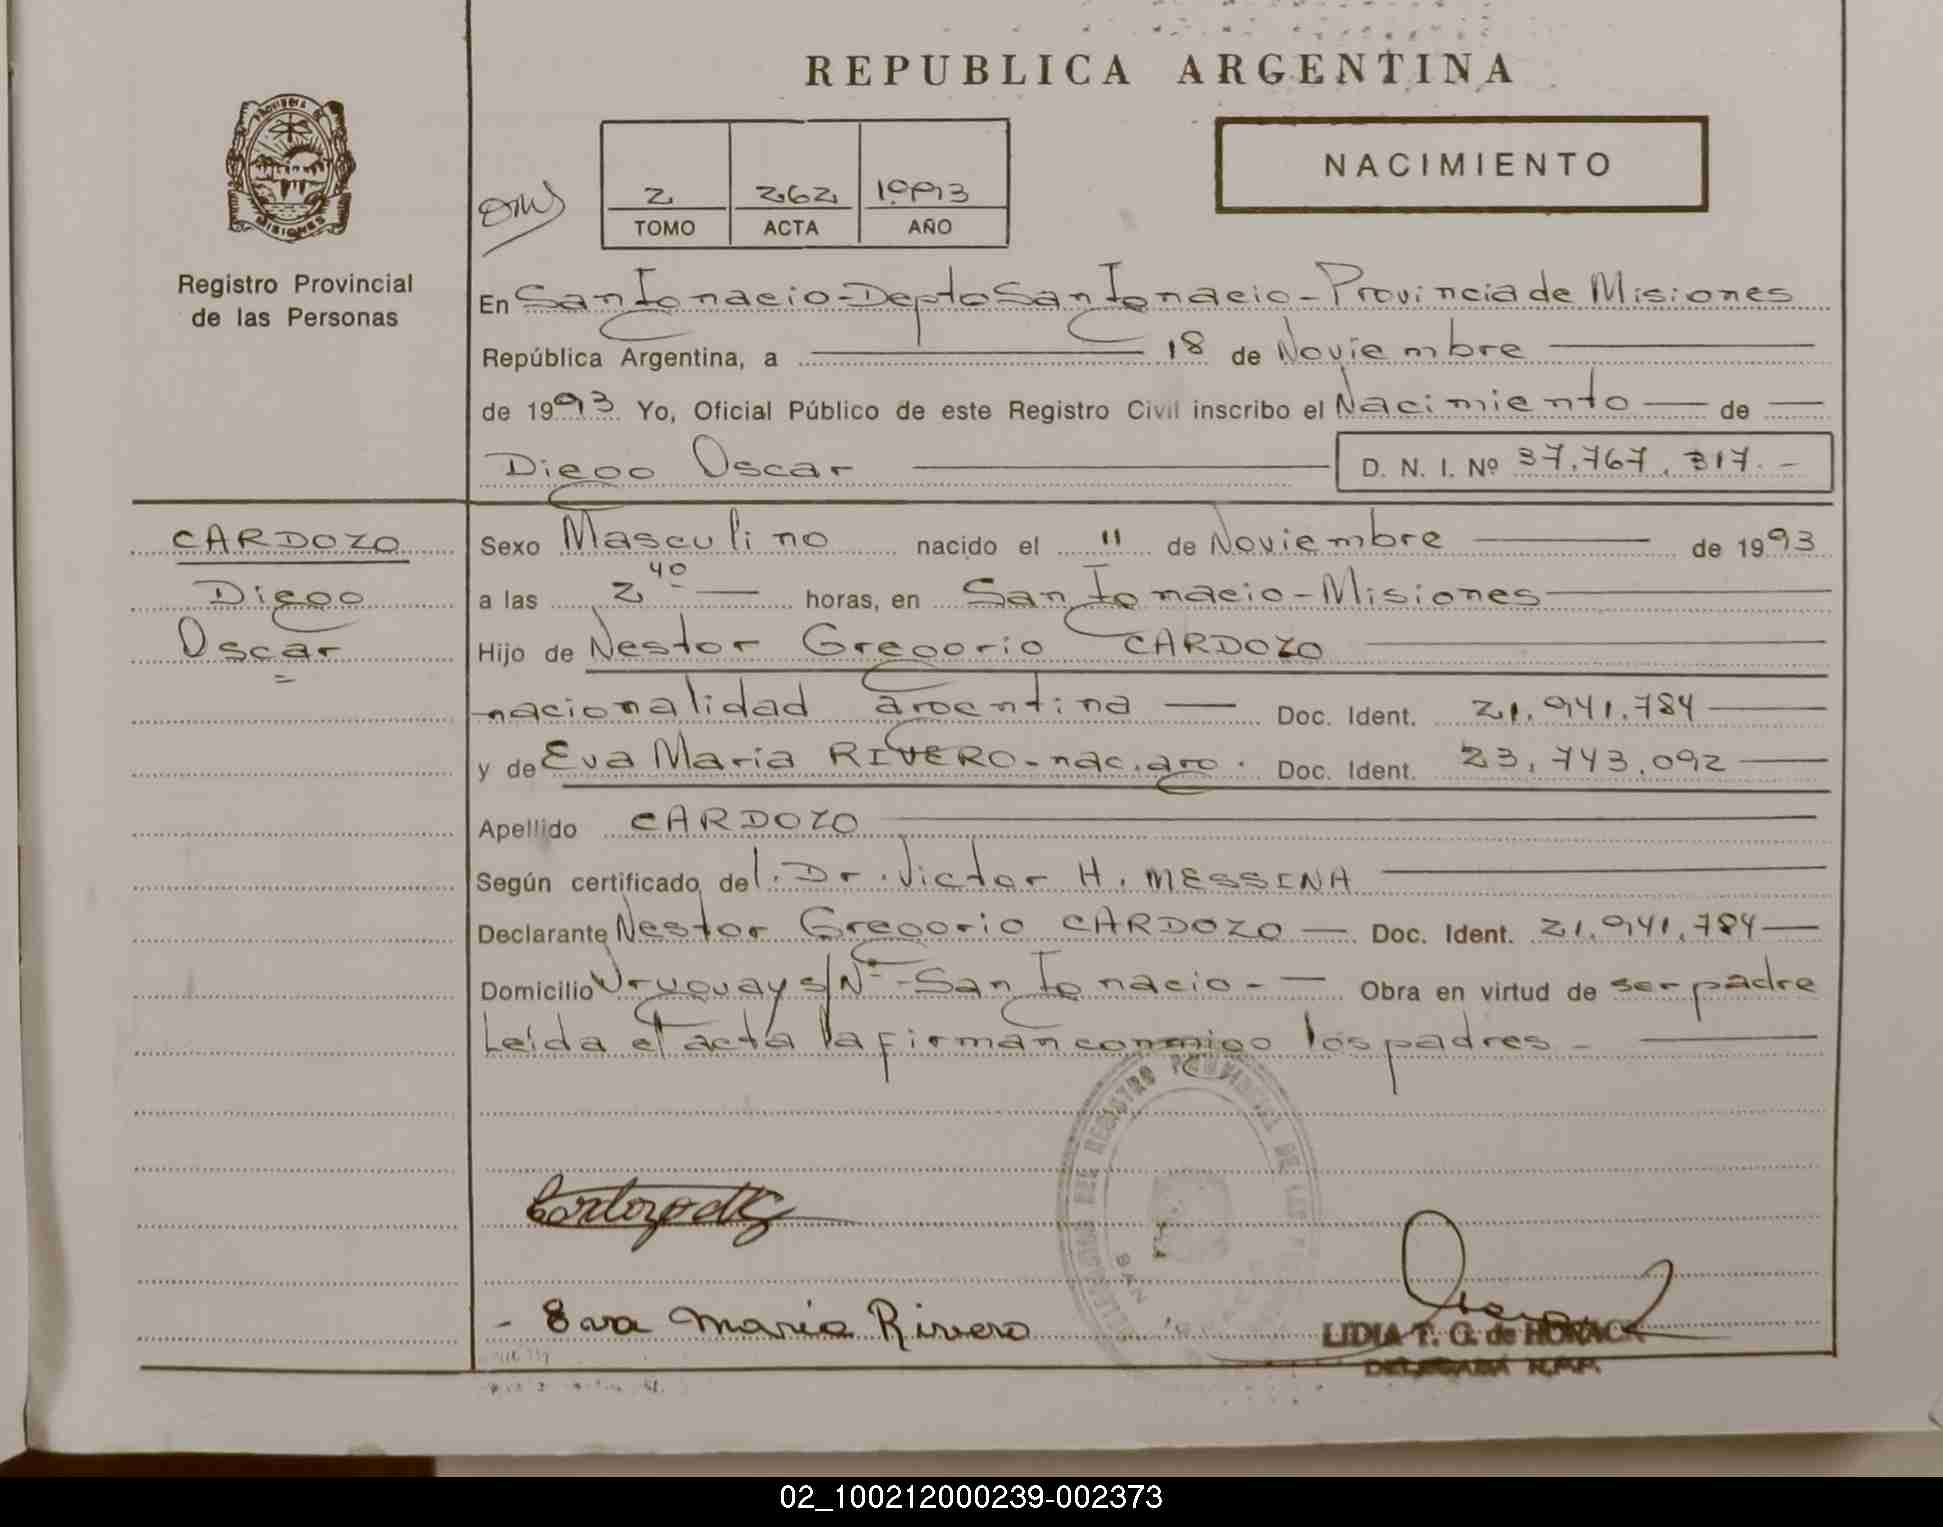 REPUBLICA ARGENTINA
NACIMIENTO
2 262 1993
TOMO ACTA AÑO
PROVINCIA DE
MISIONES
Registro Provincial
de las Personas
En San Ignacio - Depto San Ignacio - Provincia de Misiones
República Argentina, a 18 de Noviembre
de 1993 Yo, Oficial Público de este Registro Civil inscribo el Nacimiento de
Diego Oscar D. N. I. Nº 37.767.317.-
CARDOZO
Diego
Oscar
Sexo Masculino nacido el 11 de Noviembre de 1993
a las 2 40 horas, en San Ignacio - Misiones
Hijo de Nestor Gregorio CARDOZO
nacionalidad argentina Doc. Ident. 21.941.784
y de Eva Maria RIVERO - nac. arg. Doc. Ident. 23.743.092
Apellido CARDOZO
Según certificado del. Dr. Victor H. MESSINA
Declarante Nestor Gregorio CARDOZO Doc. Ident. 21.941.784
Domicilio Uruguay s/Nº - San Ignacio - Obra en virtud de ser padre
Leída el acta la firman conmigo los padres -
DEL REGISTRO PROVINCIAL DE LAS
- Eva María Rivero
LIDIA T. G. de HORACK
DELEGADA R.P.P.
02_100212000239-002373